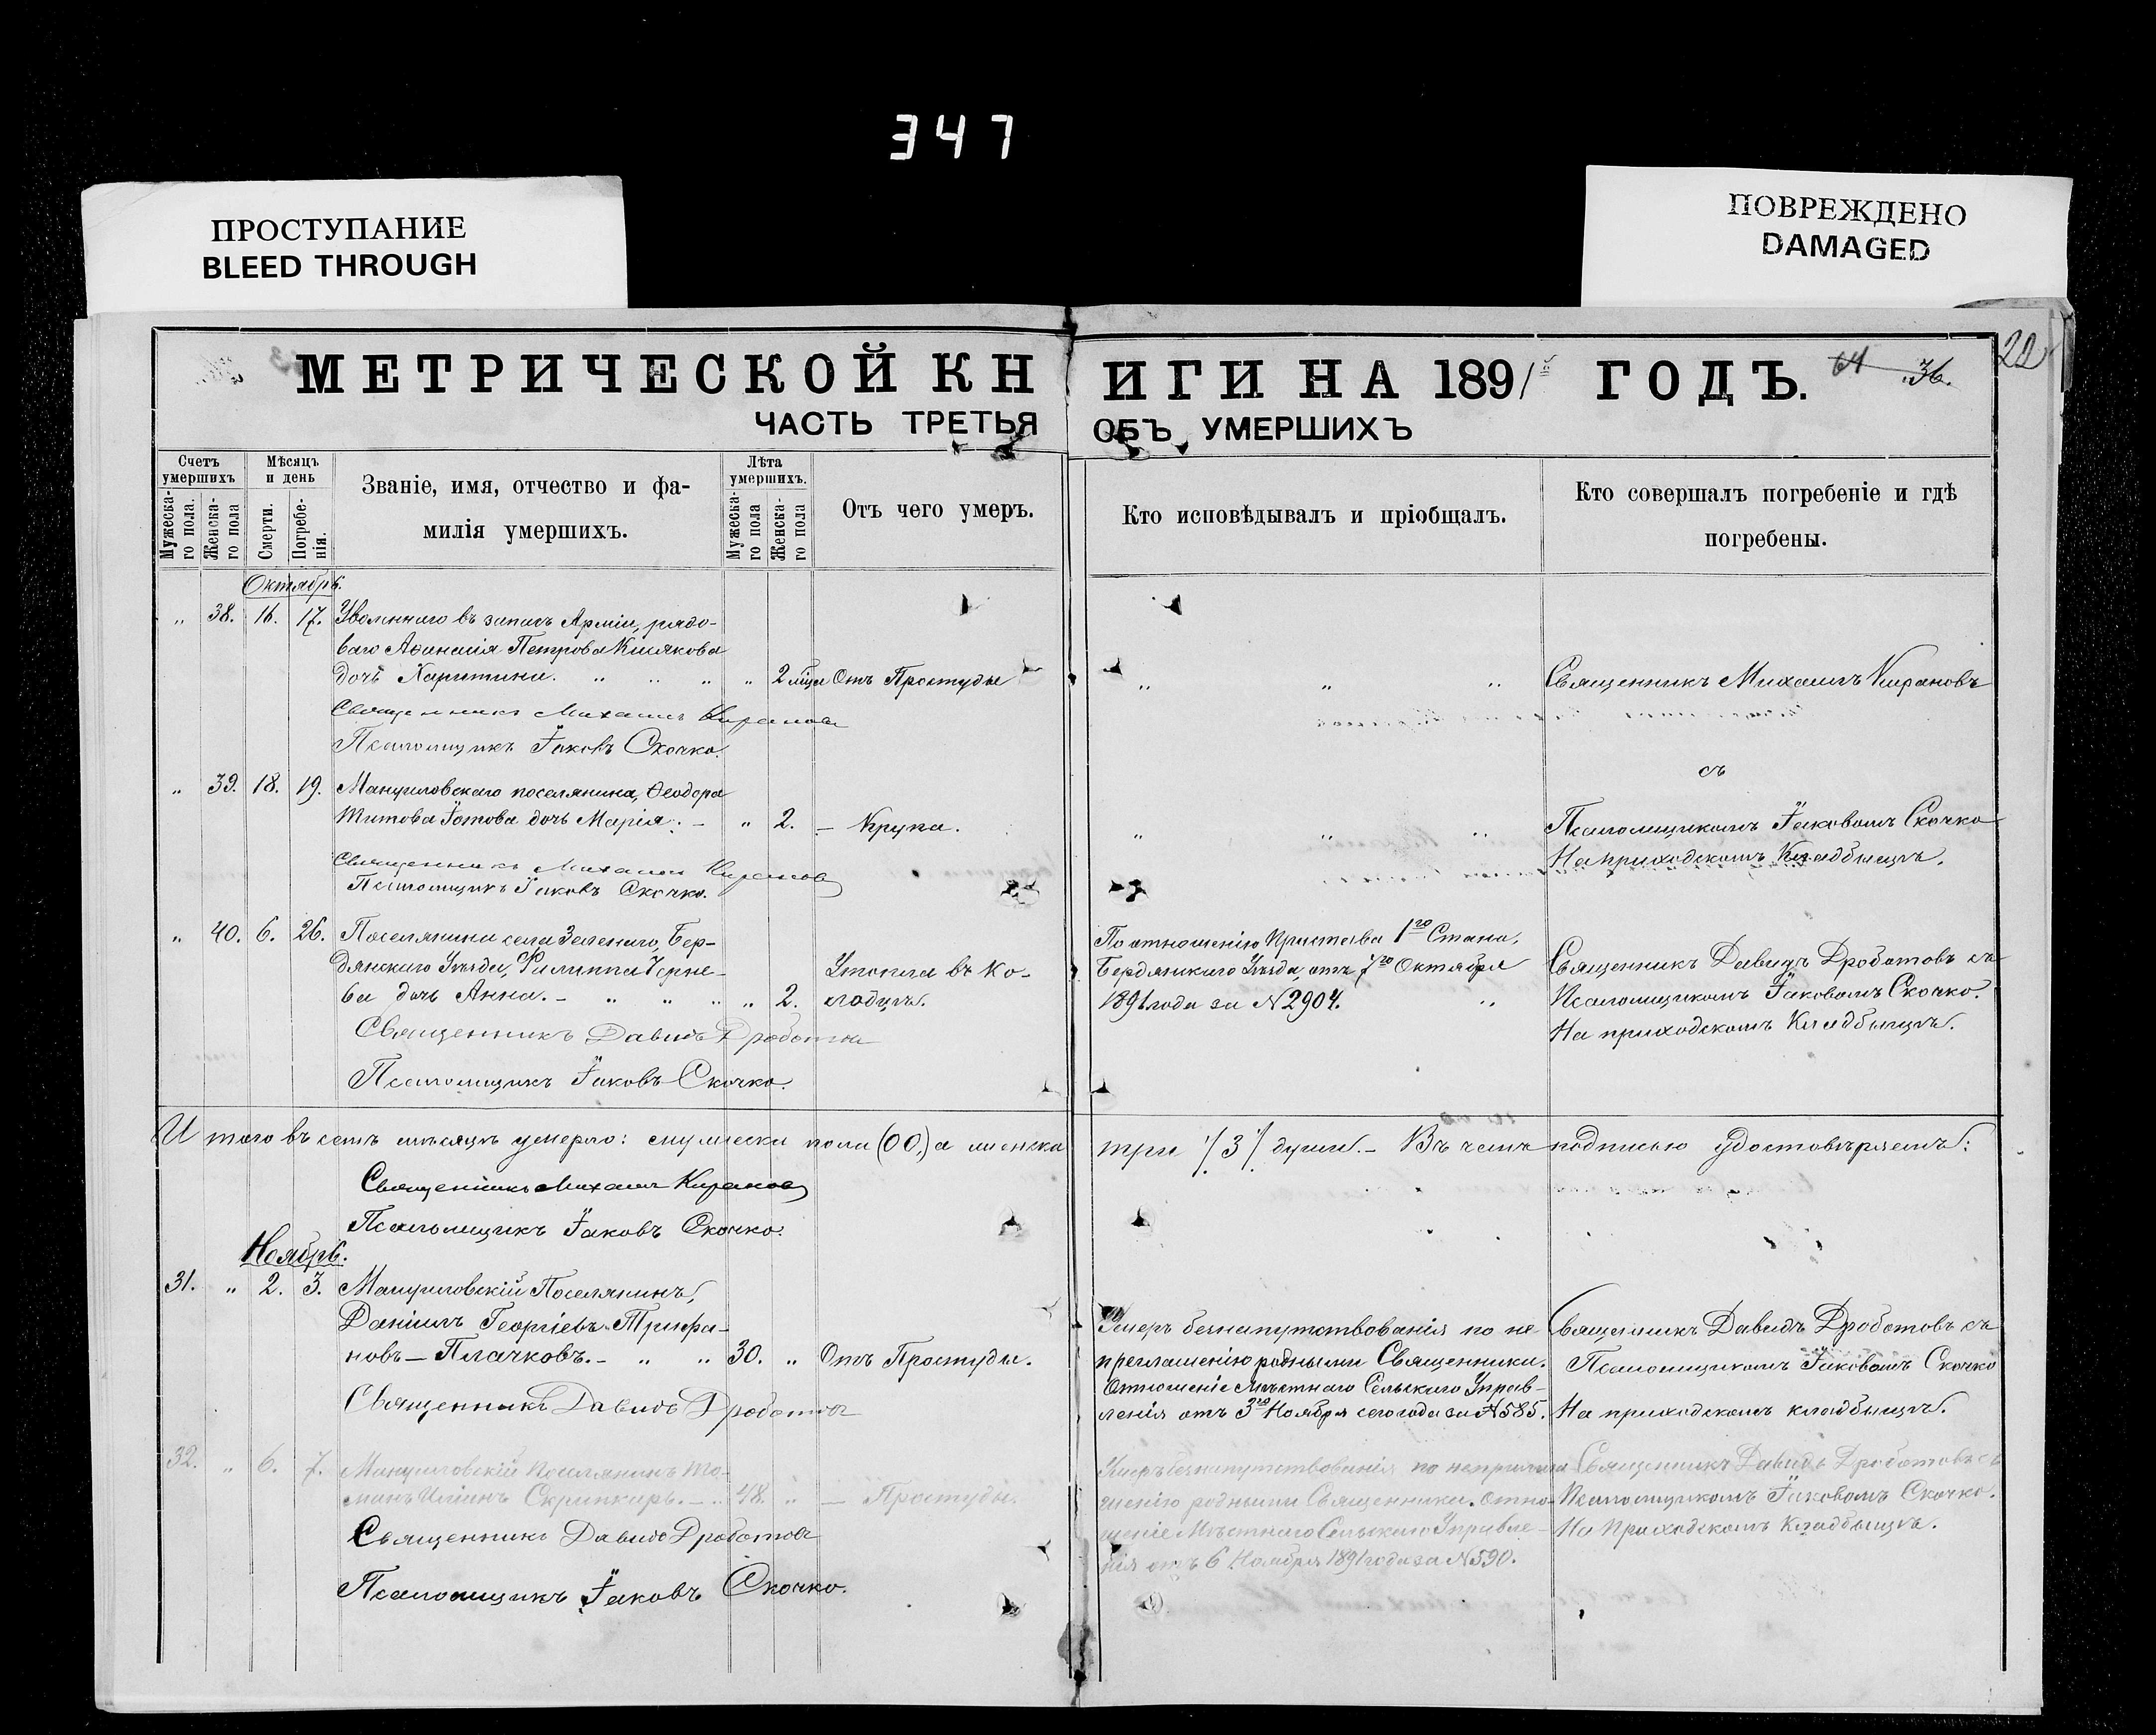 347
ПРОСТУПАНИЕ
BLEED THROUGH
ПОВРЕЖДЕНО
DAMAGED
МЕТРИЧЕСКОЙ КНИГИ НА 1891й ГОДЪ.
64 36.
22
ЧАСТЬ ТРЕТЬЯ ОБЪ УМЕРШИХЪ
Счетъ умершихъ
Мужеска-го пола.
Женска-го пола
Мѣсяцъ и день
Смерти.
Погребе-нія.
Званіе, имя, отчество и фа-
милія умершихъ.
Лѣта умершихъ.
Мужеска-го пола
Женска-го пола
Отъ чего умеръ.
Кто исповѣдывалъ и пріобщалъ.
Кто совершалъ погребеніе и гдѣ
погребены.
Октябрь.
„ 38. 16. 17. Уволеннаго въ запасъ Арміи, рядо-
ваго Аѳанасія Петрова Кислкова
дочь Харитина. „ „ „ „ 2 мца Отъ Простуды „ „ „ Священникъ Михаилъ Кирановъ
Священникъ Михаилъ Кирановъ
Псаломщикъ Іаковъ Скочко.
съ
„ 39. 18. 19. Мануиловскаго поселянина, Ѳеодора
Титова Іотова дочь Марія. – „ 2. – Крупа. „ „ „ Псаломщикомъ Іаковомъ Скочко
На приходскомъ Кладбищѣ.
Священникъ Михаилъ Кирановъ
Псаломщикъ Іаковъ Скочко.
„ 40. 6. 26. Поселянина села Зеленаго, Бер-
дянскаго Уѣзда, Филиппа Черне-
ва дочь Анна. – „ „ „ „ 2. Утопла въ Ко-
лодцѣ.
По отношенію Пристава 1го Стана,
Бердянскаго Уѣзда, отъ 7го Октября
1891 года за N 2904. „
Священникъ Давидъ Дроботовъ съ
Псаломщикомъ Іаковомъ Скочко.
На приходскомъ Кладбищѣ.
Священникъ Давидъ Дроботовъ
Псаломщикъ Іаковъ Скочко.
Итого въ семъ мѣсяцѣ умерло: мужеска пола (00.) а женска три /3/ души. – Въ чемъ подписью удостовѣряемъ:
Священникъ Михаилъ Кирановъ
Псаломщикъ Іаковъ Скочко.
Ноябрь.
31. „ 2. 3. Мануиловскій Поселянинъ,
Даніилъ Георгіевъ Трифа-
новъ – Плачковъ. – „ „ 30. „ Отъ Простуды.
Умеръ безнапутствованія по не-
преглашенію родными Священника.
Отношеніе Мѣстнаго Сельскаго Управ-
ленія отъ 3го Ноября сего года за N 585.
Священникъ Давидъ Дроботовъ съ
Псаломщикомъ Іаковомъ Скочко
На приходскомъ кладбищѣ.
Священникъ Давидъ Дроботовъ
32. „ 6. 7. Мануиловскій Поселянинъ Ро-
манъ Скрипкарь. – „ 48. „ – Простуды.
Умеръ безнапутствованія по непригла-
шенію родными Священника. Отно-
шеніе Мѣстнаго Сельскаго Управле-
нія отъ 6 Ноября 1891 года за N 590.
Священникъ Давидъ Дроботовъ съ
Псаломщикомъ Іаковомъ Скочко.
На Приходскомъ Кладбищѣ.
Священникъ Давидъ Дроботовъ
Псаломщикъ Іаковъ Скочко.